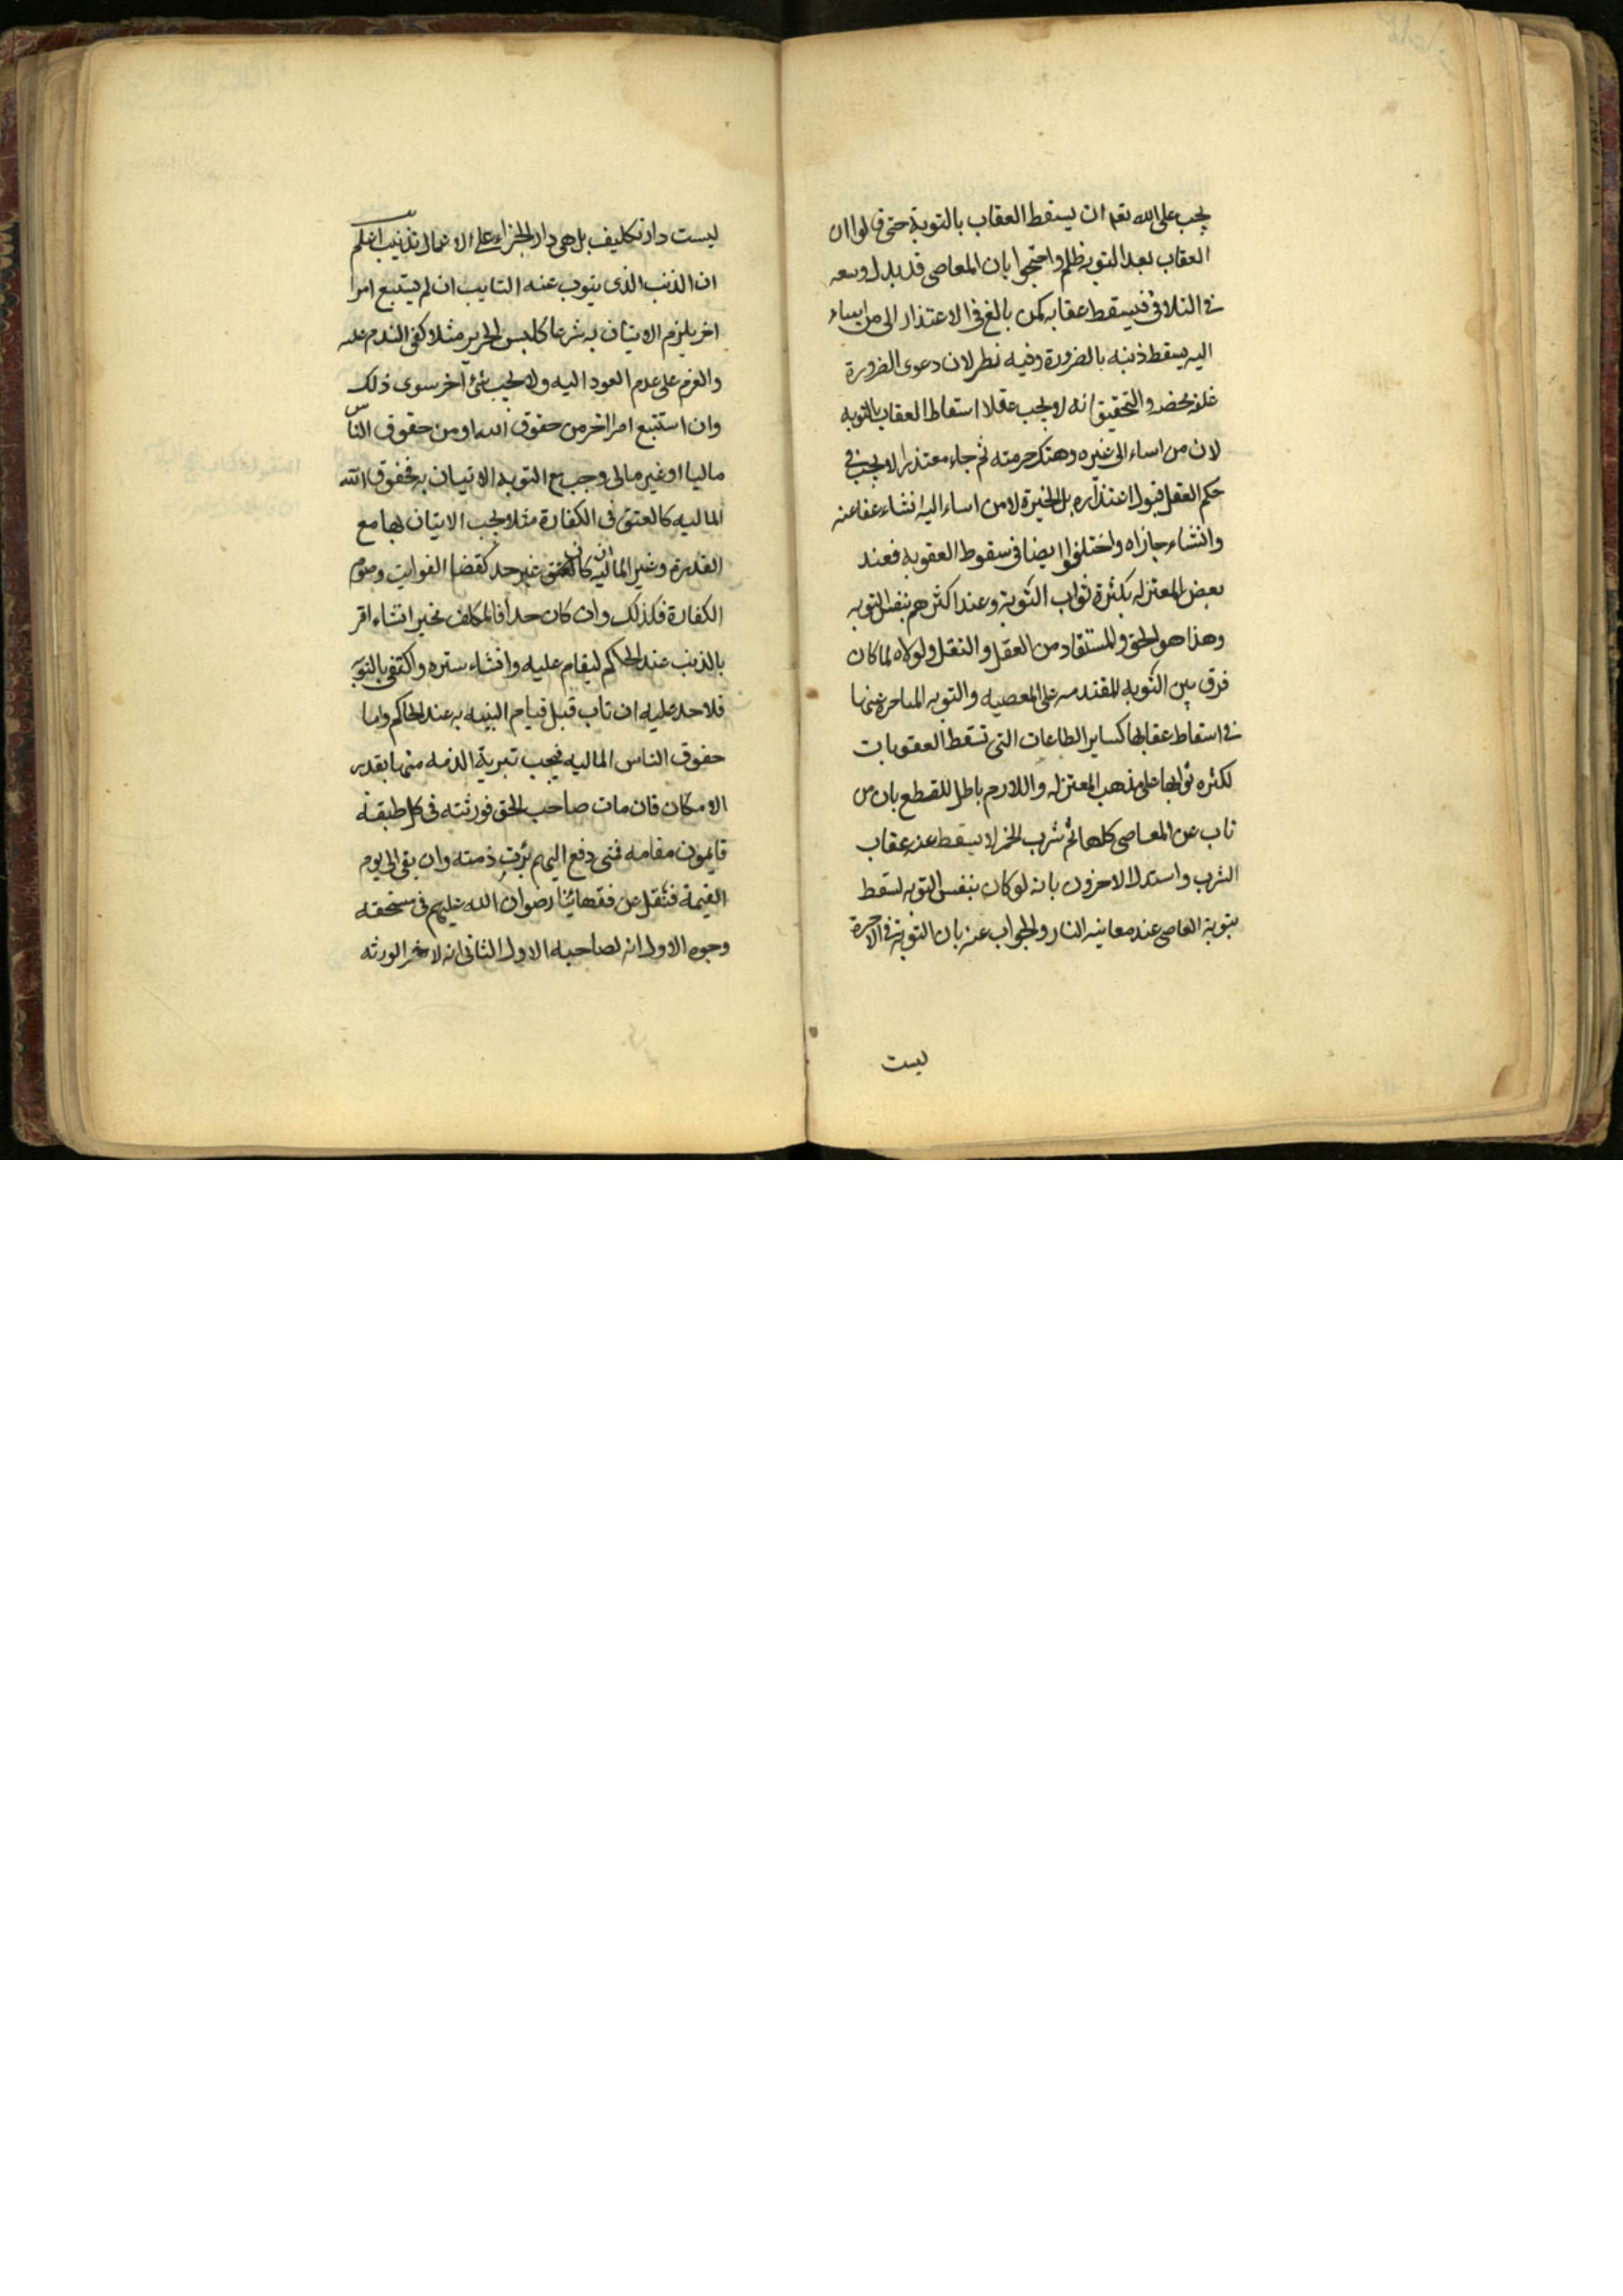 يجب على الله تعم ان يسقط العقاب بالتوبة حتى قالوا ان
العقاب بعد التوبة ظلم واحتجوا بان المعاصى قد بدل وسعه
فى التلافى فيسقط عقابه كمن بالغ فى الاعتذار الى من اساء
اليه يسقط ذنبه بالضرورة وفيه نظر لان دعوى الضرورة
غلط محض والتحقيق انه لا يجب عقلا اسقاط العقاب بالتوبه
لان من اساء الى غيره وهتك حرمته ثم جاء معتذرا لا يجب فى
حكم العقل قبول اعتذاره بل الخيرة لمن اساء اليه انشاء عفا عنه
وانشاء جازاه واختلفوا ايضا فى سقوط العقوبه فعند
بعض المعتزله بكثرة ثواب التوبة وعند اكثرهم بنفس التوبه
وهذا هو الحق والمستفاد من العقل والنقل ولولاه لما كان
فرق بين التوبه المقتدمه على المعصيه والتوبه المتاخره عنها
فى اسقاط عقابها كساير الطاعات التى تسقط العقوبات
لكثره ثوابها على مذهب المعتزله واللازم باطل للقطع بان من
تاب عن المعاصى كلها ثم شرب الخمر لا يسقط عنه عقاب
الشرب واستدل الاخرون بانه لو كان بنفس التوبه لسقط
بتوبة العاصى عند معاينه النار والجواب عنه بان التوبة فى الاخرة
ليست
ليست دار تكليف بل هى دار الجزاء على الاعمال تذنيب اعلم
ان الذنب الذى يتوب عنه التايب ان لم يستتبع امرا
اخر يلزم الاتيان به شرعا كلبس الحرير مثلا كفى الندم عليه
والعزم على عدم العود اليه ولا يجب شئ اخر سوى ذلك
وان استتبع امرا اخر من حقوق الله او من حقوق الناس
ماليا او غير مالى وجب مع التوبه الاتيان به فحقوق الله
الماليه كالعتق فى الكفارة مثلا يجب الاتيان بها مع
القدرة وغير الماليه ان كان غير حد كقضا الفوايت وصوم
الكفارة فكذلك وان كان حدا فالمكلف مخير انشاء اقر
بالذنب عند الحاكم ليقام عليه وانشاء ستره واكتفى بالتوبة
فلا حد عليه ان تاب قبل قيام البنيه به عند الحاكم واما
حقوق الناس الماليه فيجب تبرية الذمه منها بقدر
الامكان فان مات صاحب الحق فورثته فى كل طبقة
قايمون مقامه فمتى دفع اليهم برئت ذمته وان بقى الى يوم
القيمة فنقل عن فقهائنا رضوان الله عليهم فى مستحقه
وجوه الاول انه لصاحبه الاول الثانى انه لاخر الورثه